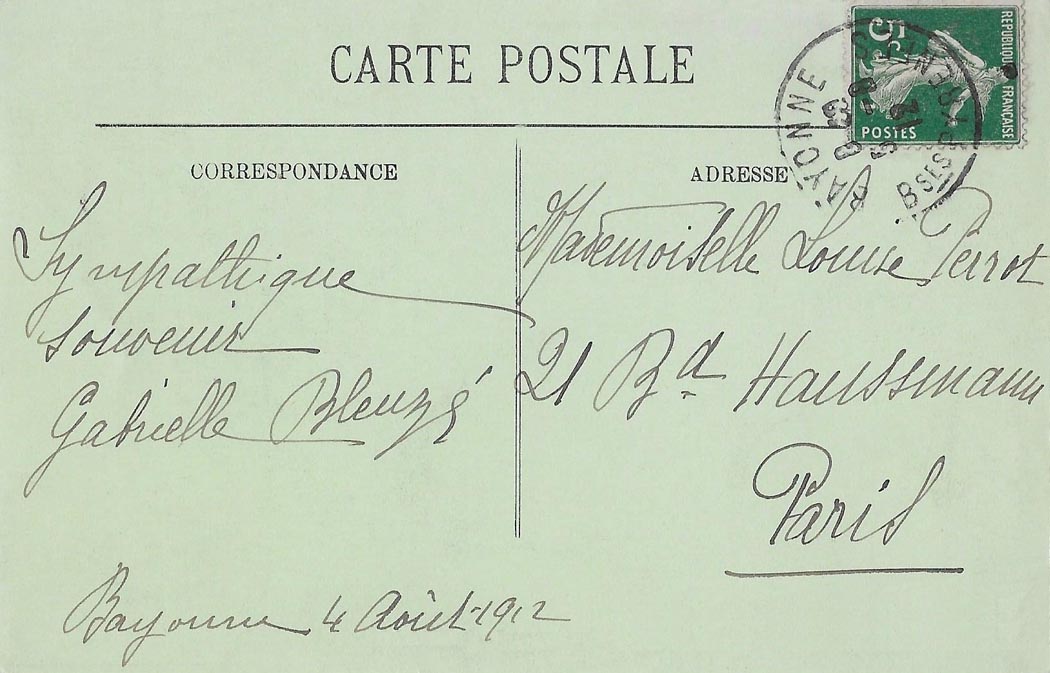 CARTE POSTALE
CORRESPONDANCE
Sympathique
souvenir
Gabrielle Bleuzé
Bayonne 4 Août 1912
ADRESSE
Mademoiselle Louise Perrot
21 Bd Haussmann
Paris
REPUBLIQUE FRANÇAISE
5
POSTES
BAYONNE
BSES PYRENEES